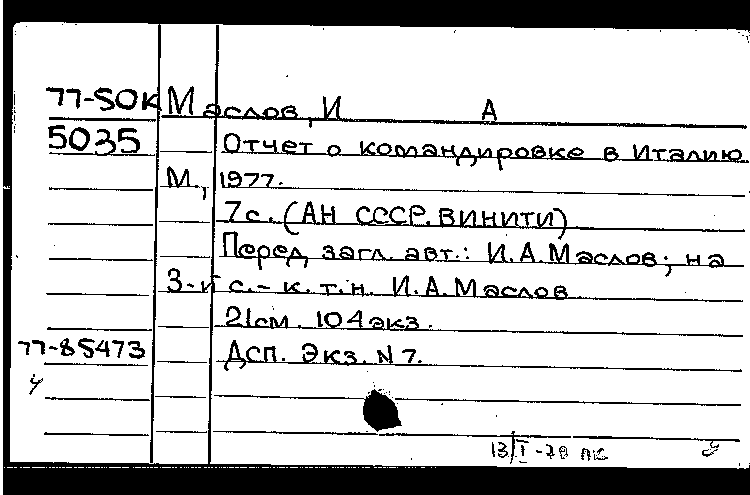 77-SOK Маслов, И А
5035 Отчет о командировке в Италию
М., 1977.
7с. (АН СССР. ВИНИТИ)
Перед загл. авт.: И.А.Маслов; на
3-й с.- к.т.н. И.А.Маслов
21см. 104экз.
77-85473 Дсп. Экз. N7.
13/I-78